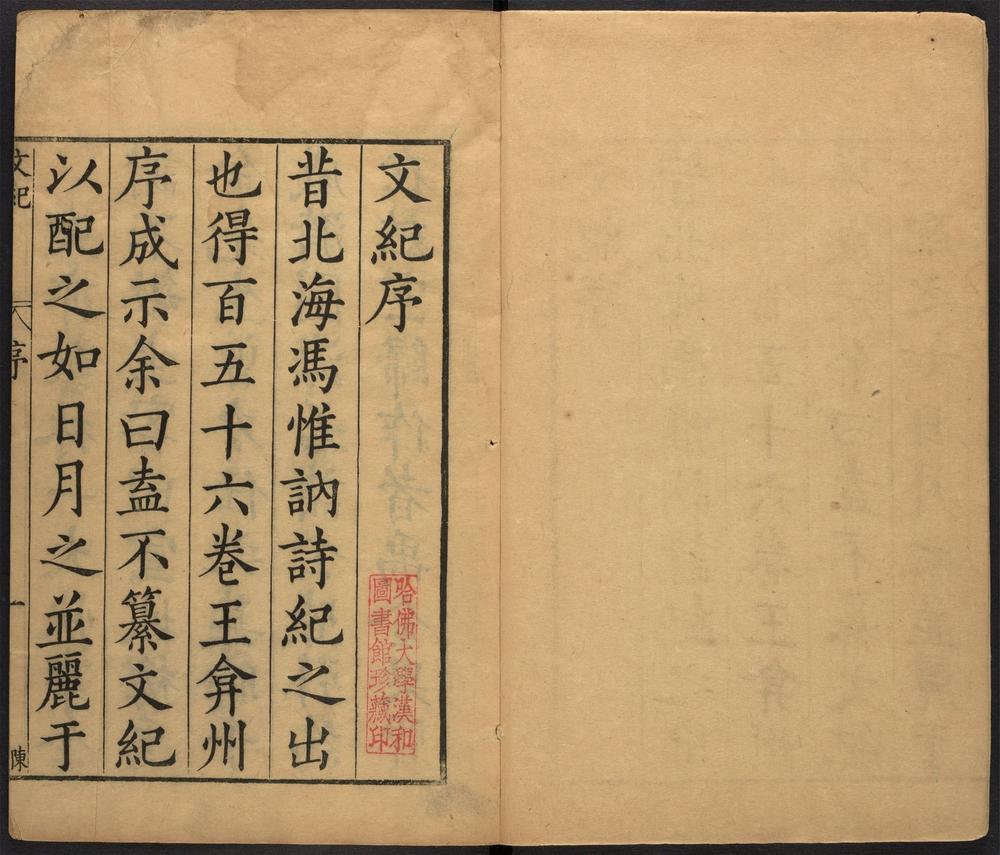 文紀序
昔北海馮惟訥詩紀之出
也得百五十六卷王弇州
序成示余曰盍不纂文紀
以配之如日月之並麗于
文紀
序
一
陳
哈佛大學漢和
圖書館珍藏印